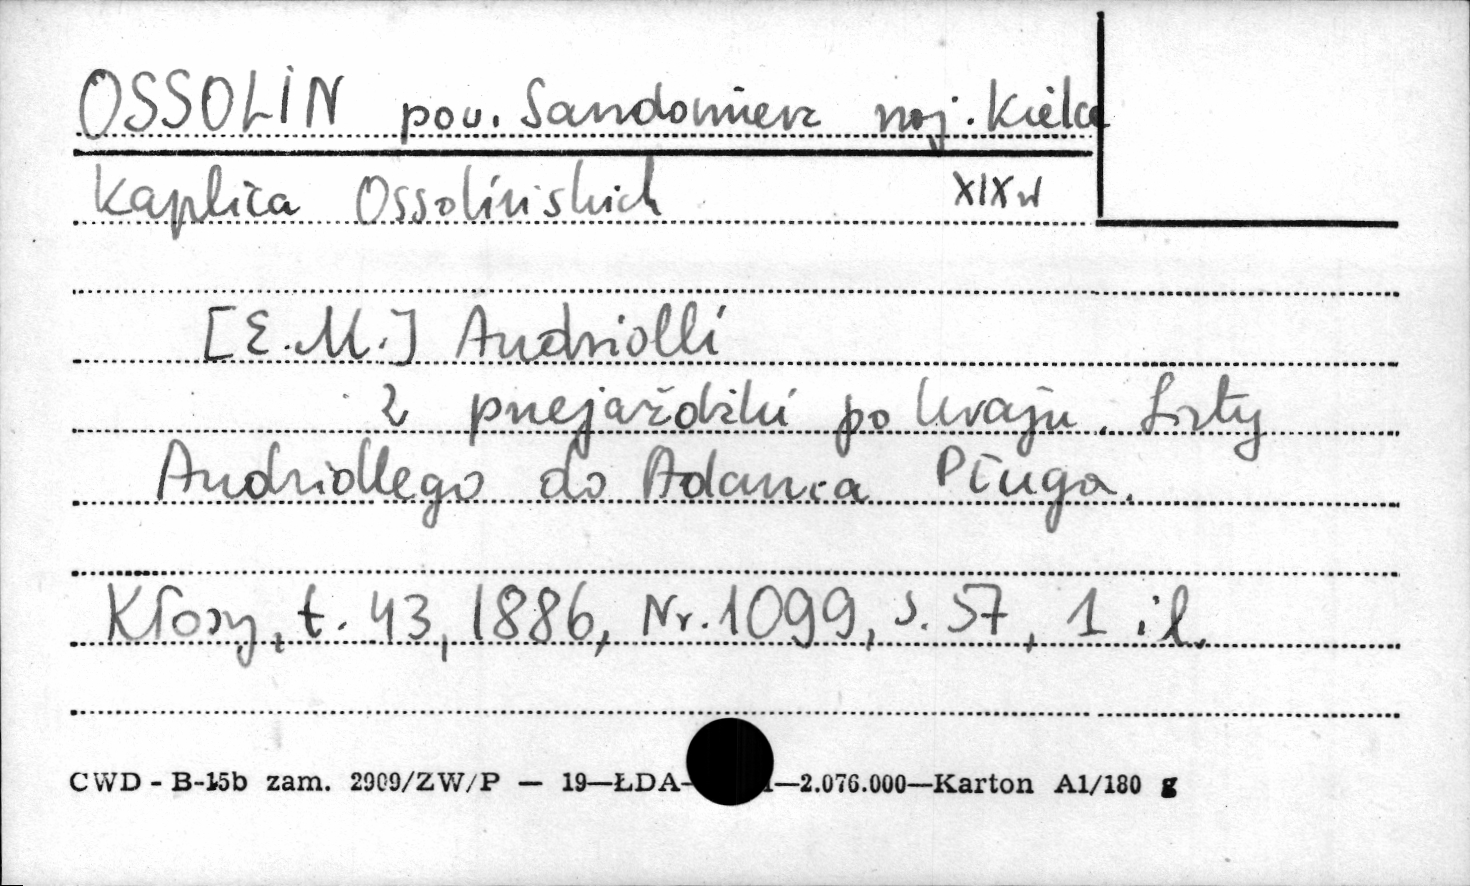 OSSOLIN pow. Sandomierz woj. Kielce
Kaplica Ossolińskich XIX w
[E. M.] Andriolli
Z przejażdżki po kraju. Listy
Andriollego do Adama Pługa.
Kłosy, t. 43, 1886, Nr. 1099, s. 57, 1 il.
CWD - B-15b zam. 2909/ZW/P — 19—ŁDA- —2.076.000—Karton A1/180 g